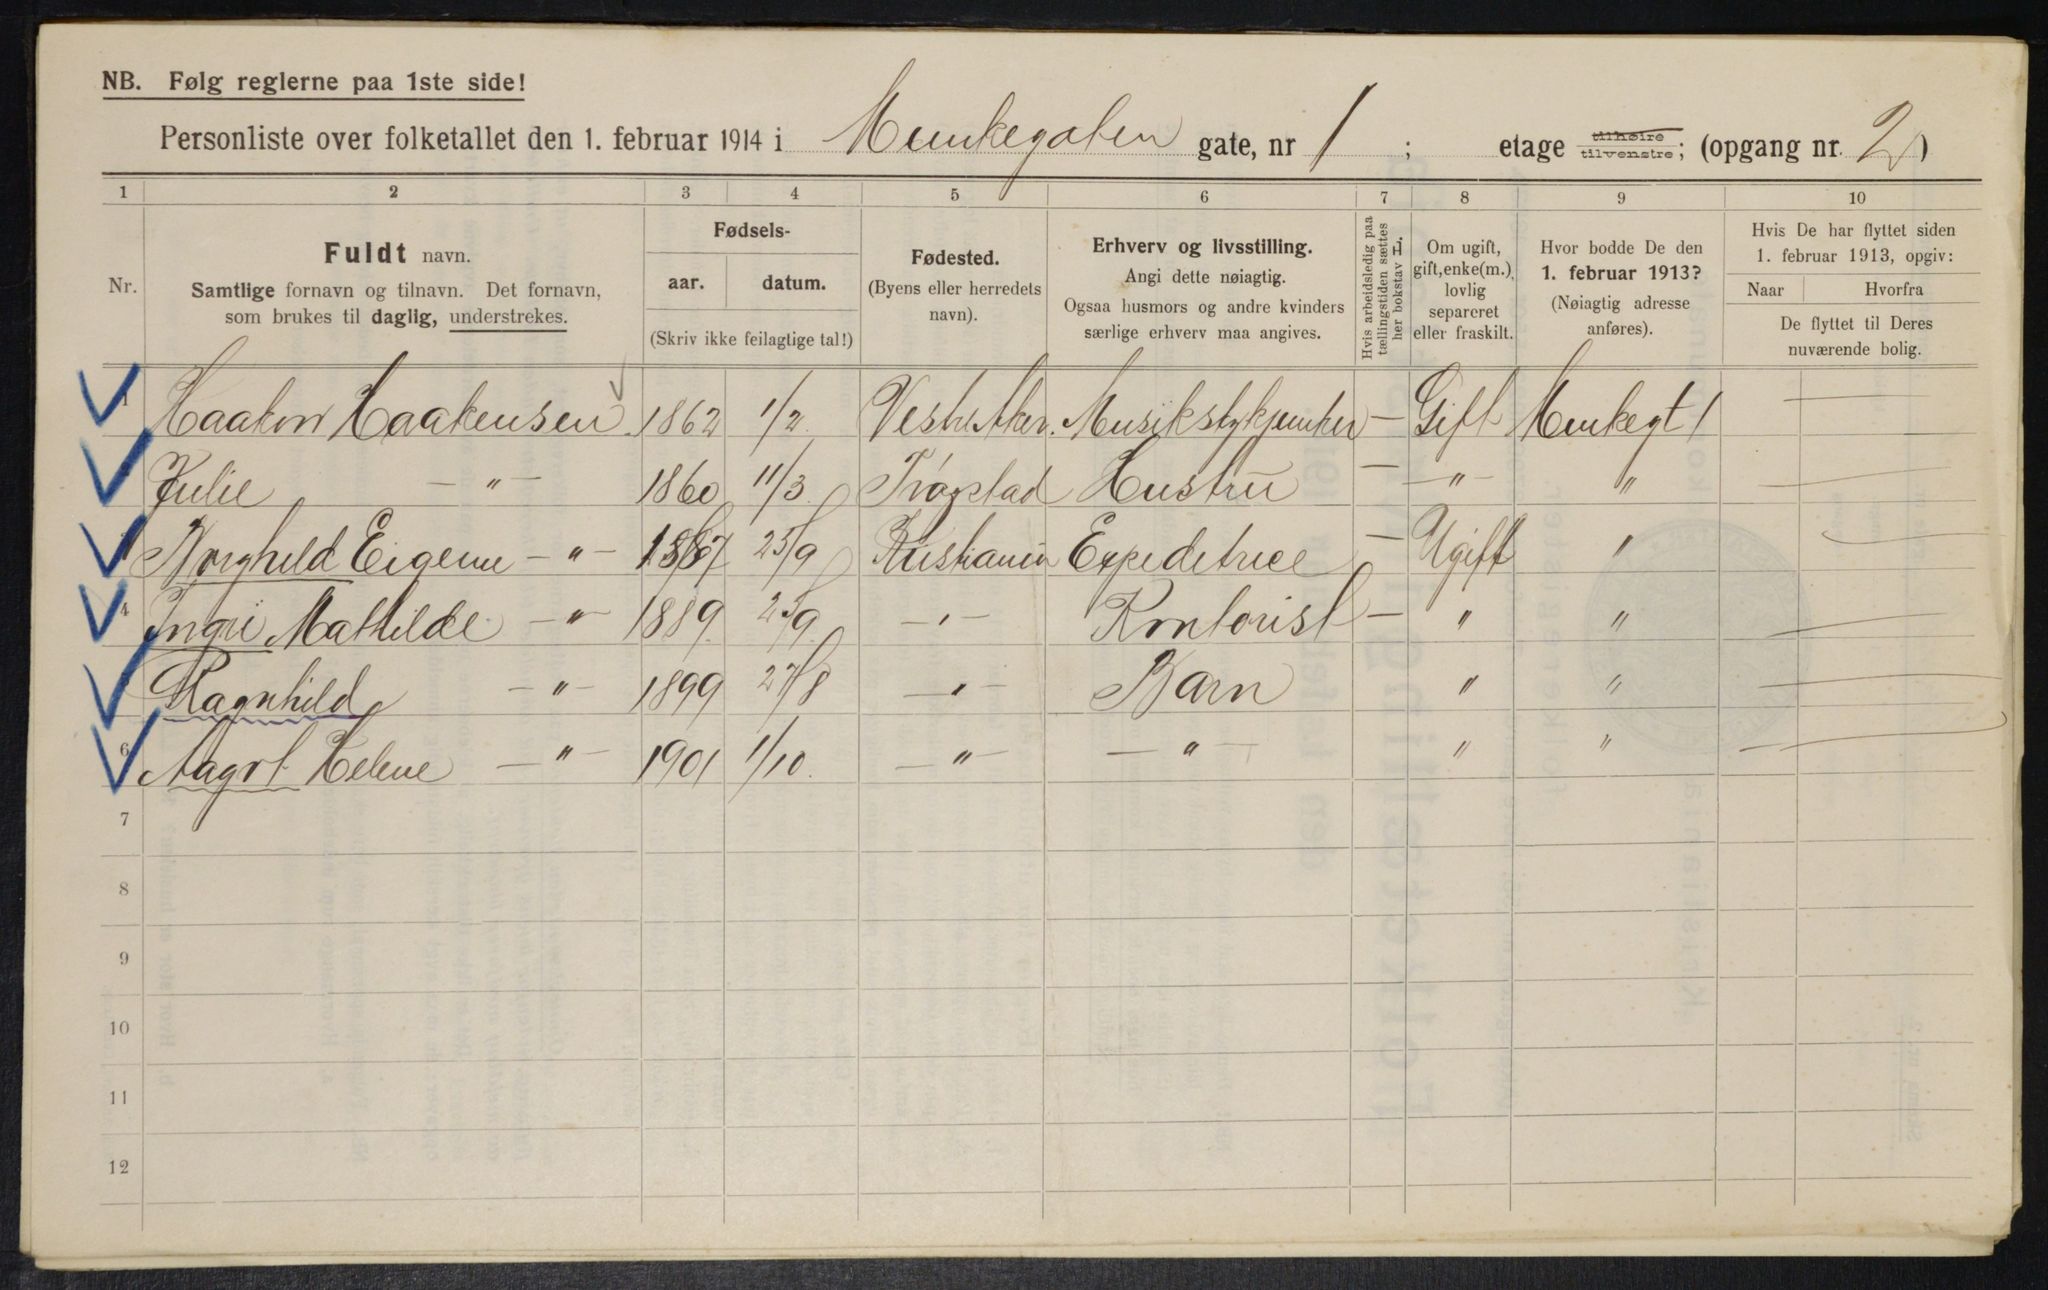 NB. Følg reglerne paa 1ste side!
Personliste over folketallet den 1. februar 1914 i Munkegaten gate, nr 1 ; etage tilhøire tilvenstre; (opgang nr. 2)
1 2 3 4 5 6 7 8 9 10
Nr.
Fuldt navn.
Samtlige fornavn og tilnavn. Det fornavn,
som brukes til daglig, understrekes.
Fødsels-
aar. datum.
(Skriv ikke feilagtige tal!)
Fødested.
(Byens eller herredets
navn).
Erhverv og livsstilling.
Angi dette nøiagtig.
Ogsaa husmors og andre kvinders
særlige erhverv maa angives.
Hvis arbeidsledig paa
tællingstiden sættes
her bokstav L.
Om ugift,
gift, enke(m.),
lovlig
separeret
eller fraskilt.
Hvor bodde De den
1. februar 1913?
(Nøiagtig adresse
anføres).
Hvis De har flyttet siden
1. februar 1913, opgiv:
Naar Hvorfra
De flyttet til Deres
nuværende bolig.
1 Haakon Haakensen 1862 1/2 Vestre Aker. – Gift Munkegt 1
Julie – " – 1860 11/3 Trøgstad Hustru – – " – "
Borghild – " – 1887 25/9 Kristiania Expeditrice – Ugift "
4 Mathilde – " – 1889 25/9 – " – Kontorist – " "
Ragnhild – " – 1899 27/8 – " – Barn " "
6 Aagot Helene – " – 1901 1/10. – " – – " – " "
7
8
9
10
11
12